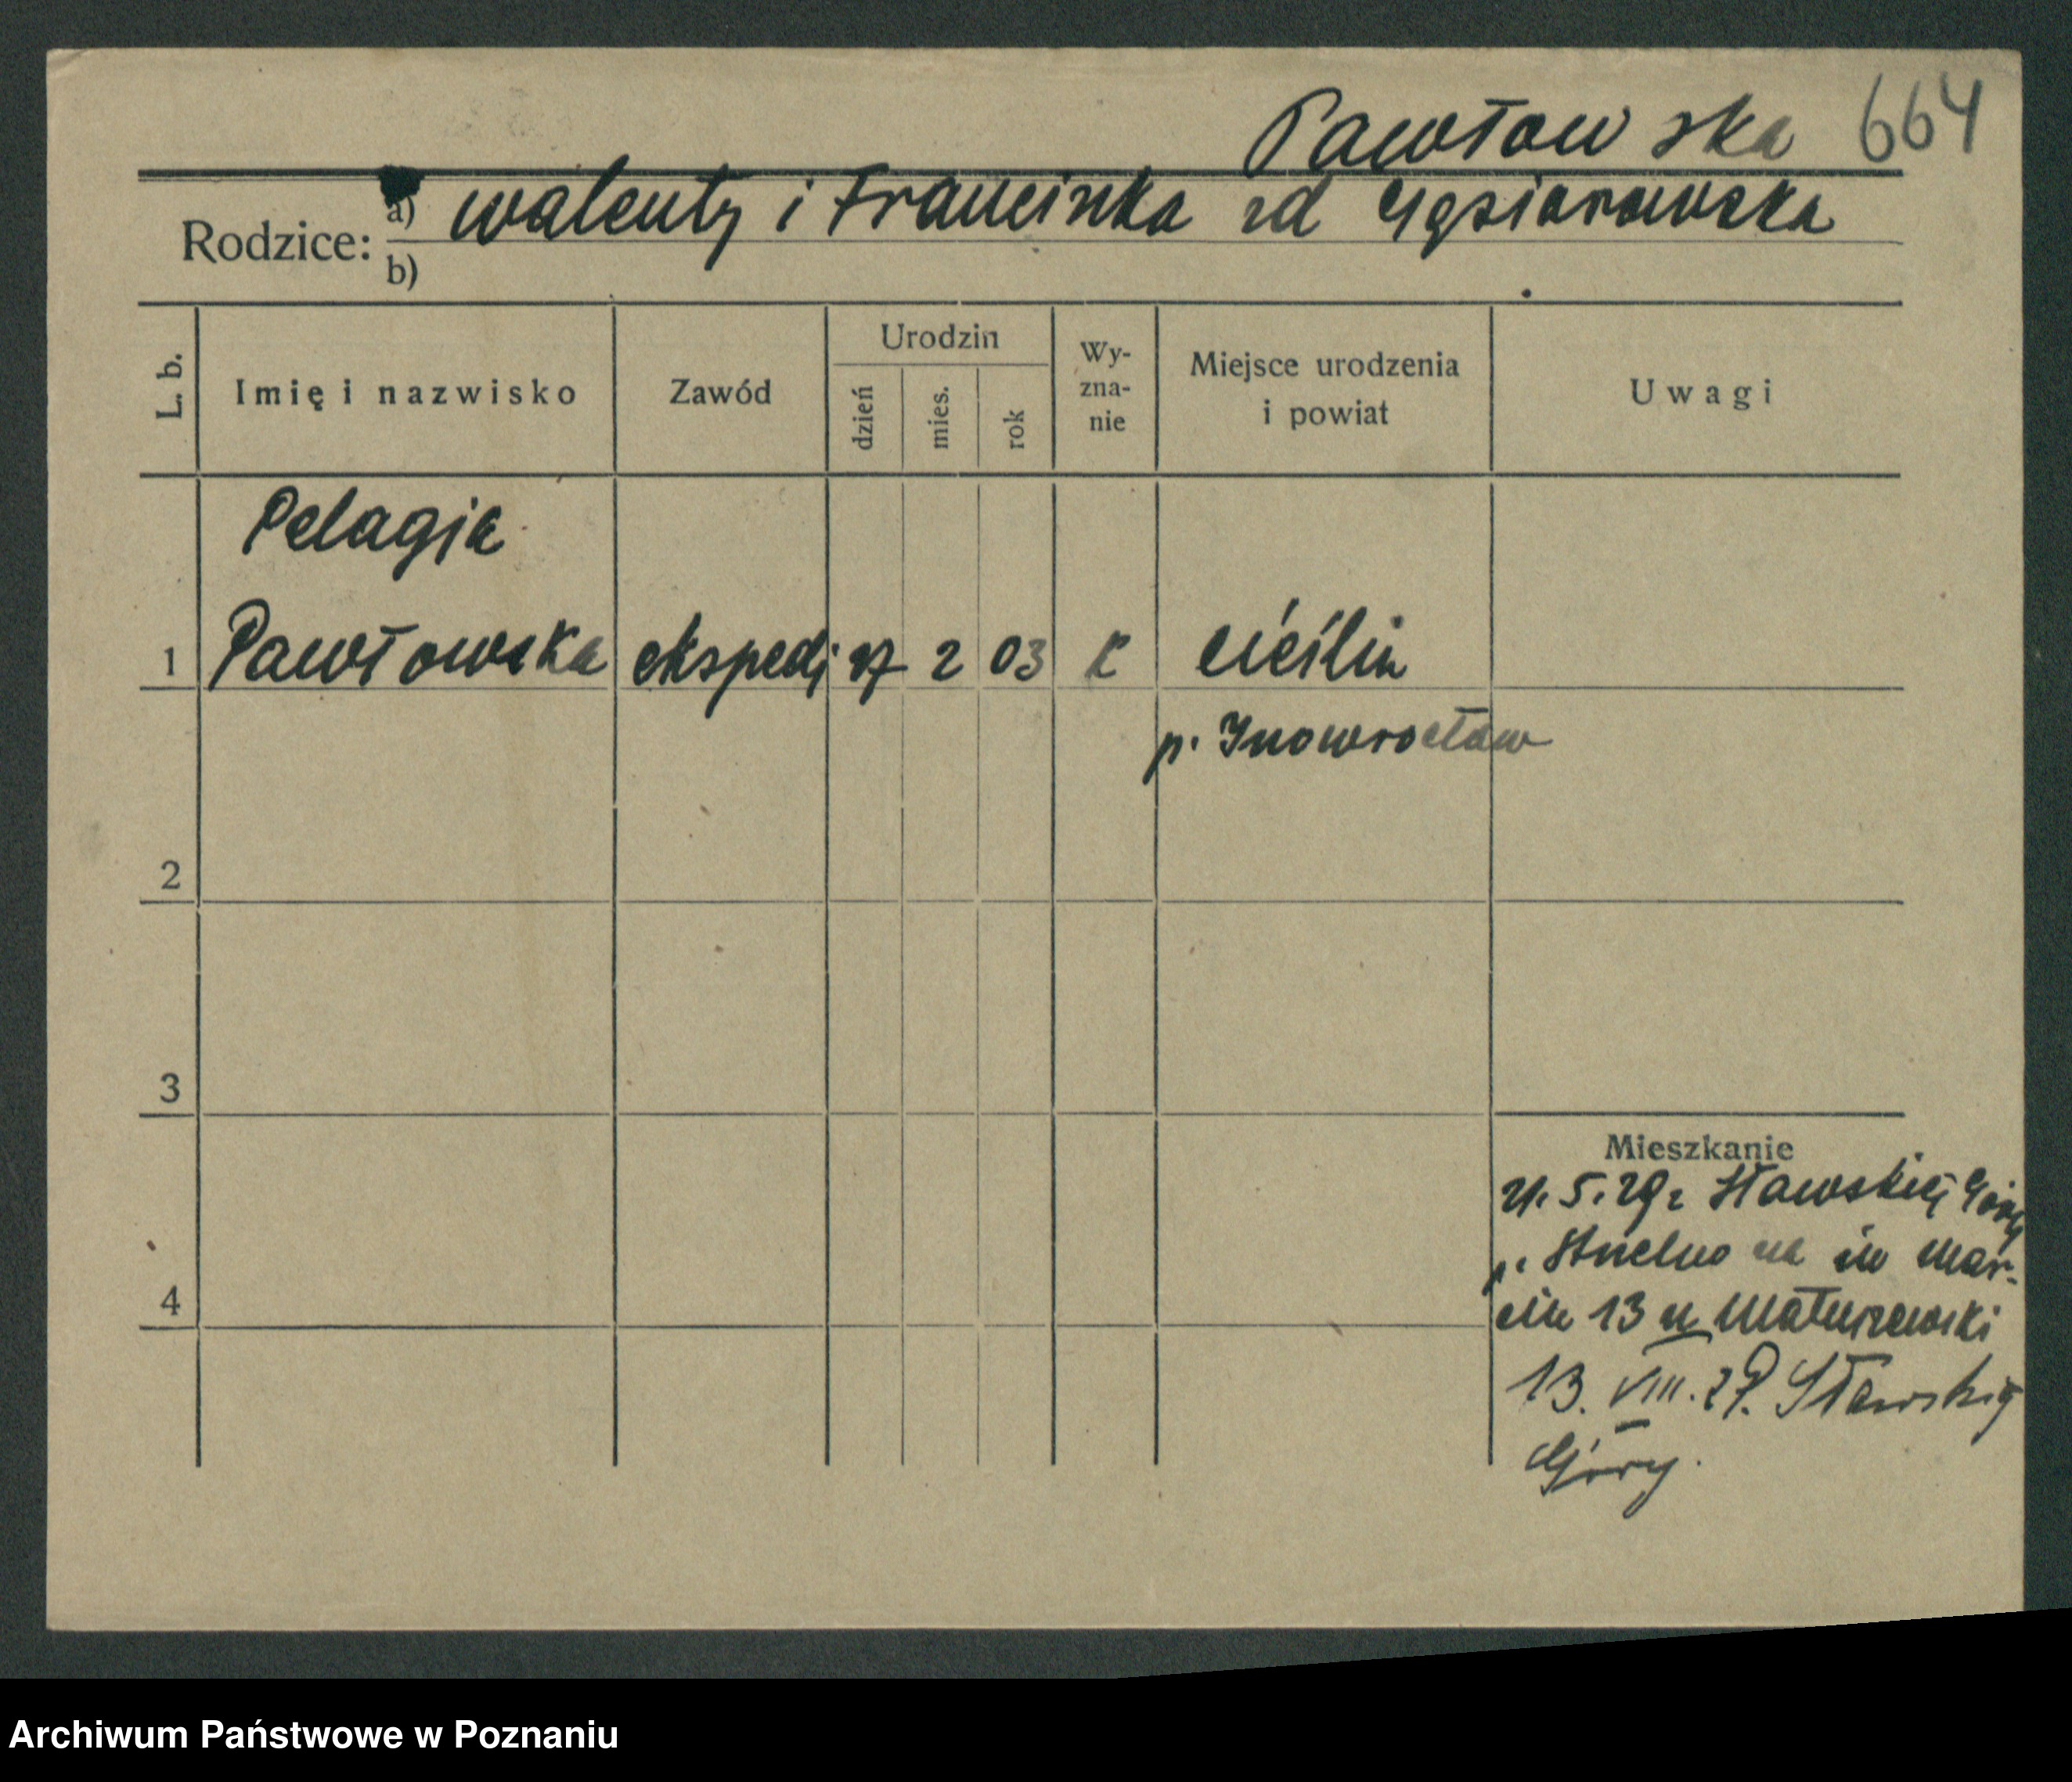 Pawłowska 664
Rodzice: a) Walenty i Franciszka zd Gąsiorowska
b)
L. b. Imię i nazwisko Zawód Urodzin dzień mies. rok Wy-zna-nie Miejsce urodzenia i powiat Uwagi
Pelagia
1 Pawłowska ekspedj 27 2 03 K Cieślin
p. Inowrocław
2
3
Mieszkanie
21. 5. 29 z Sławskiej Góry
p. Strzelno na św Mar-
4
cin 13 u Matuszewski
13. VIII. 29. Sławskiej
Góry.
Archiwum Państwowe w Poznaniu